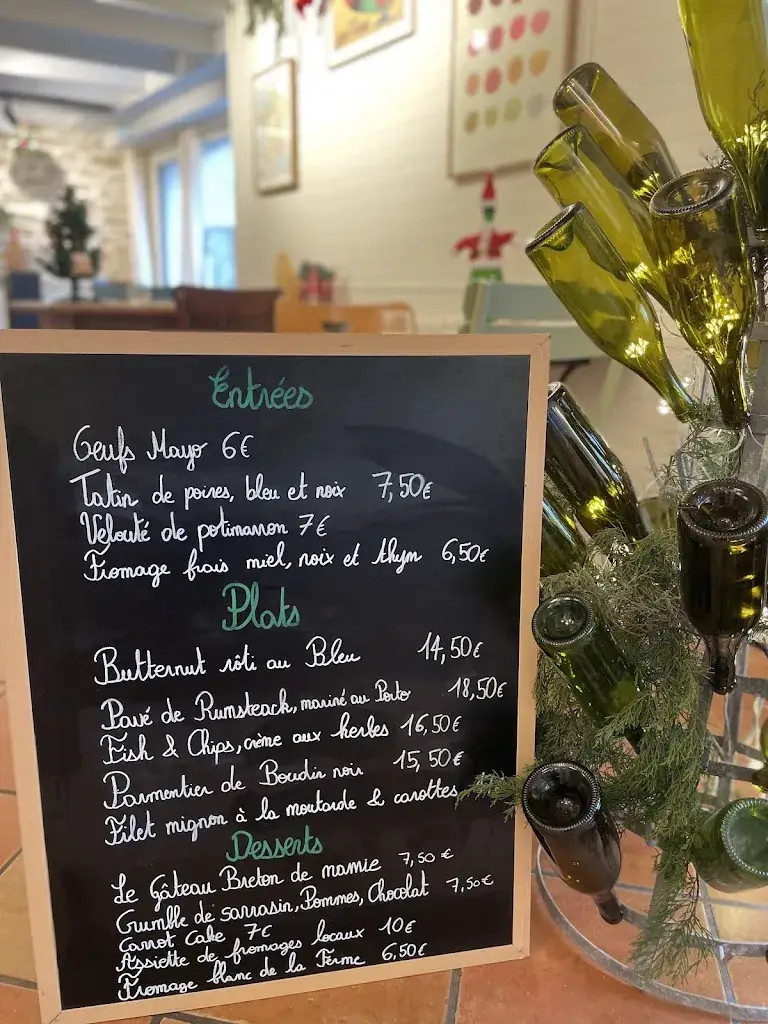 Entrées
Oeufs Mayo 6€
Tatin de poires, bleu et noix 7,50€
Velouté de potimarron 7€
Fromage frais miel, noix et thym 6,50€
Plats
Butternut rôti au Bleu 14,50€
Pavé de Rumsteack, mariné au Porto 18,50€
Fish & Chips, crème aux herbes 16,50€
Parmentier de Boudin noir 15,50€
Filet mignon à la moutarde & carottes
Desserts
Le Gâteau Breton de mamie 7,50€
Crumble de sarrasin, Pommes, Chocolat 7,50€
Carrot Cake 7€
Assiette de fromages locaux 10€
Fromage blanc de la Ferme 6,50€